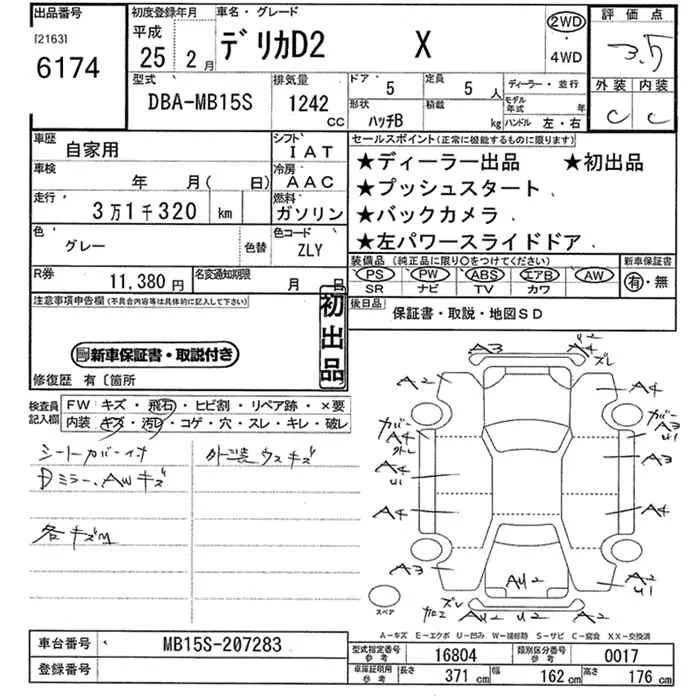 出品番号 初度登録年月 車名・グレード 評価点
[2163] 平成 デリカD2 X 2WD・4WD 3.5
6174 25年 2月
型式 排気量 ドア 5 定員 5人 ディーラー・並行 外装 内装
DBA-MB15S 1242cc 形状 ハッチB 積載 kg モデル年式 年 ハンドル 左・右 C C
車歴 自家用 シフト IAT セールスポイント(正常に機能するものに限ります)
車検 年 月( 日) 冷房 AAC ★ディーラー出品 ★初出品
走行 3万1千320 km 燃料 ガソリン ★プッシュスタート
★バックカメラ
色 グレー 色替 色コード ZLY ★左パワースライドドア
R券 11,380円 名変通知期限 月 日 装備品(純正品に限り○をつけてください) 新車保証書
PS PW ABS エアB AW 有・無
SR ナビ TV カワ
注意事項申告欄(不具合内容等は具体的に記入して下さい) 初出品 後日品 保証書・取説・地図SD
新車保証書・取説付き
修復歴 有〔箇所
検査員記入欄 FW キズ・飛石・ヒビ割・リペア跡・×要
内装 キズ・汚レ・コゲ・穴・スレ・キレ・破レ
シートカバー付 外装ウスキズ
Dミラー、AWキズ
各キズ
A3 U2 A4 ズレ
A2 A4
カバー A4 カバー A3 U1
A4 U1 A3
A4 A4
A3 AU2 A2 U1
スペア ズレ
A2 U2 A2
A-キズ E-エクボ U-凹み W-補修跡 S-サビ C-腐食 XX-交換済
車台番号 MB15S-207283 型式指定番号 参考 16804 類別区分番号 参考 0017
登録番号 車庫証明用 参考 長さ 371cm 幅 162cm 高さ 176cm